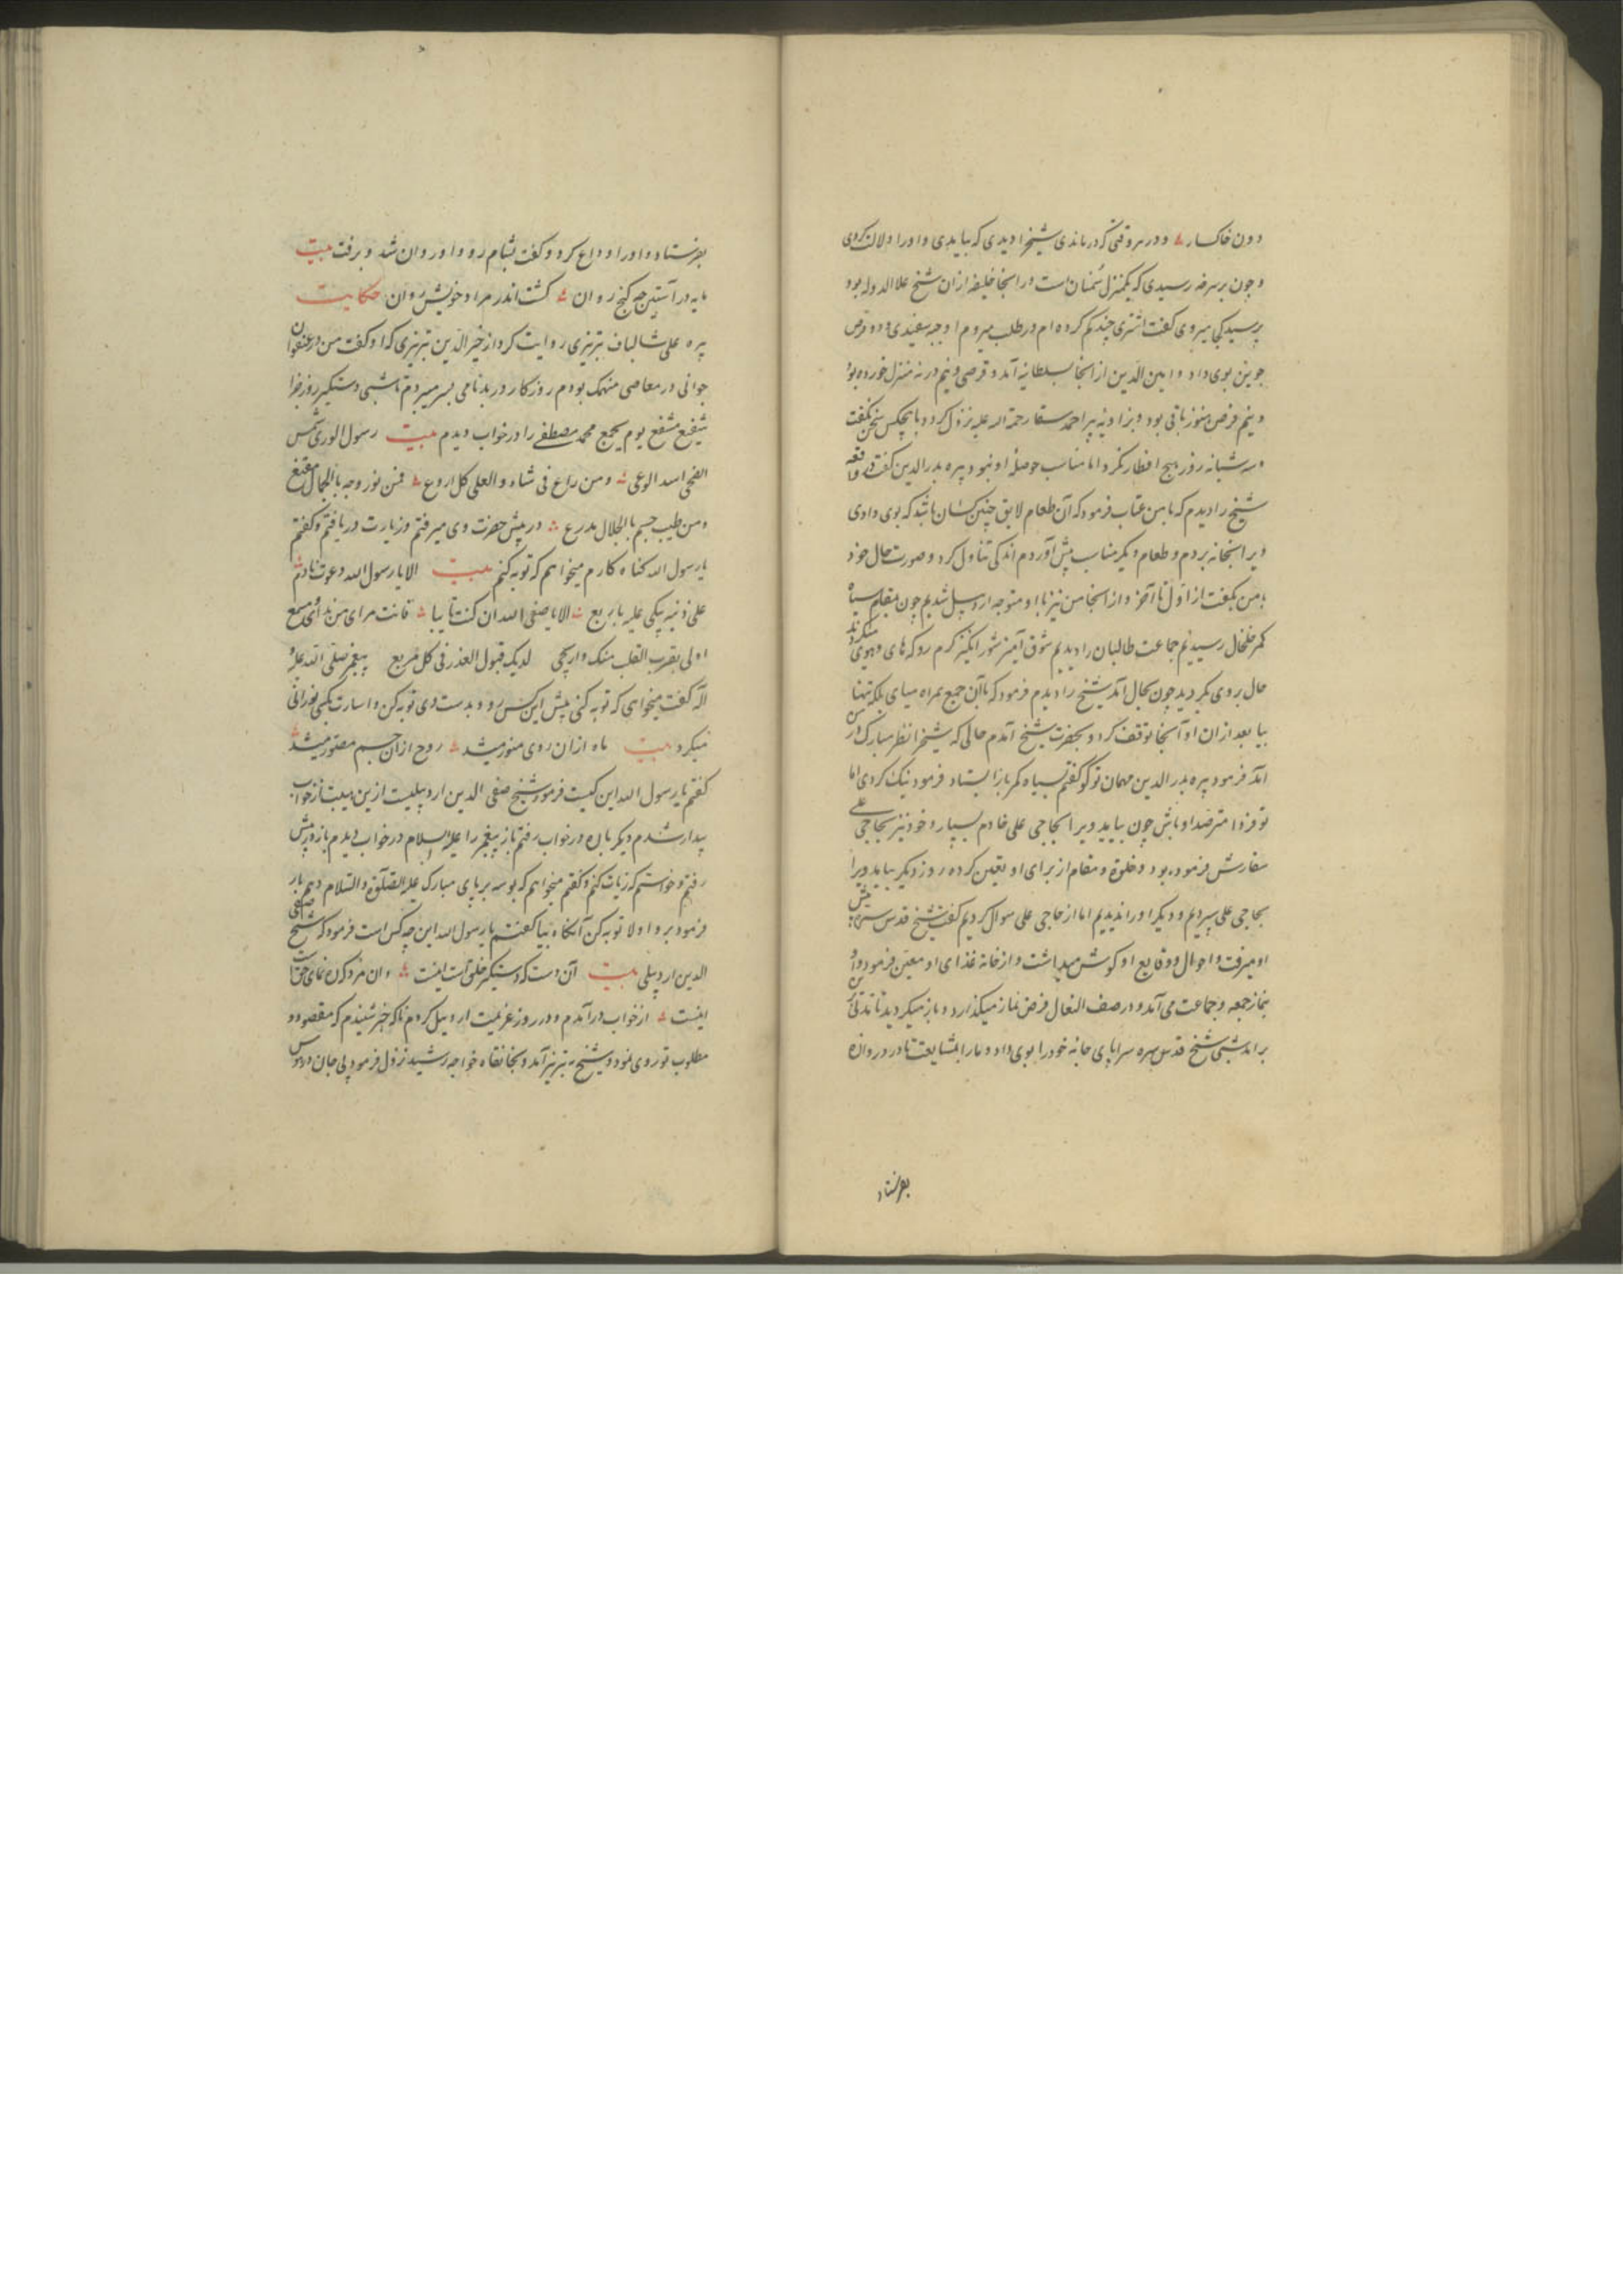 دون خاکسار و در هر وقتی که درماندی شیخ را دیدی که بیابدی و او را دلالت کردی
و چون بسرخه رسیدی که یکمنزل سمنان است در آنجا خلیفه از ان شیخ علا الدوله بود
پرسید کجا میروی گفت اشتری چند گم کرده‌ام در طلب میروم او جبه سفیدی و دو قرص
جوین بوی داد و امین الدین از آنجا بسلطانیه آمد و قرصی و نیم در نه منزل خورده بود
و نیم قرص هنوز باقی بود و بزاویه پیر احمد سقا رحمة الله علیه نزول کرد و با هیچکس سخن نگفت
و سه شبانه روز هیچ افطار نکرد اما مناسب حوصله او نبود پیره بدر الدین گفت در واقعه
شیخ را دیدم که با من عتاب فرمود که آن طعام لایق چنین کسان باشد که بوی دادی
ویرا بخانه بردم و طعام دیگر مناسب پیش آوردم اندکی تناول کرد و صورت حال خود
با من بگفت از اول تا آخر و از آنجا من نیز با او متوجه اردبیل شدیم چون بمقام سیاه
کمر خلخال رسیدیم جماعت طالبان را دیدیم شوق آمیز شور انگیز گرم رو که های و هوی میکردند
حال بر وی بگردید چون بحال آمد شیخ را دیدم فرمود که با آن جمع همراه میای بلکه تنها
بیا بعد از ان او آنجا توقف کرد و بحضرت شیخ آمدم حالی که شیخ را نظر مبارک در من
آمد فرمود پیره بدر الدین مهمان تو کو گفتم بسیاه کمر باز ایستاد فرمود نیک کردی اما
تو فردا مترصد او باش چون بیاید ویرا بحاجی علی خادم بسپار و خود نیز بحاجی علی
سفارش فرموده بود و خلوة و مقام از برای او تعین کرده روز دیگر بیامد ویرا
بحاجی علی سپردیم و دیگر او را ندیدیم اما از حاجی علی سوال کردیم گفت شیخ قدس سره پیش
او میرفت و احوال و وقایع او گوش میداشت و از خانه غذای او معین فرمود و او
بنماز جمعه و جماعت می‌آمد و در صف النعال فرض نماز میگذارد و باز میگردید تا مدتی برین
بر آمد شبی شیخ قدس سره سراپای جامه خود را بوی داد و ما را بمشایعت تا در دروازه
بفرستاد
بفرستاد و او را وداع کرد و گفت بشام رو و او روان شد و برفت بیت
مایه در آستین چه گنج روان گشت اندر مراد خویش روان حکایت
پیره علی شالباف تبریزی روایت کرد از خیر الدین تبریزی که او گفت من در عنفوان
جوانی در معاصی منهمک بودم روزگار در بدنامی بسر میبردم تا شبی دستگیر روز جزا
شفیع مشفع یوم یجمع محمد مصطفی را در خواب دیدم بیت رسول الوری شمس
الضحی اسد الوغی و من راع فی شاه و العلی کل اروع فمن نور وجه بالجمال مقنع
و من طیب جسم بالجلال مدرع در پیش حضرت وی میرفتم و زیارت دریافتم و گفتم
یا رسول الله گناه کارم میخواهم که توبه کنم بیت الا یا رسول الله دعوت نادم
علی ذنبه یبکی علیه باربع الا یا صفی الله ان کنت تایبا فانت مرای من ندائی و مسمع
اولی بقرب القلب منک وارتجی لدیک قبول العذر فی کل مربع پیغمبر صلی الله علیه و
آله گفت میخواهی که توبه کنی پیش این کس رو و بدست وی توبه کن و اشارت بکسی نورانی
میکرد بیت ماه از ان روی منور میشد روح از ان جسم مصور میشد
گفتم یا رسول الله این کیست فرمود شیخ صفی الدین اردبیلیست ازین هیبت از خواب
بیدار شدم دیگر باره در خواب رفتم باز پیغمبر را علیه السلام در خواب دیدم باز در پیش
رفتم و خواستم که زیارت کنم و گفتم میخواهم که بوسه بر پای مبارک علیه الصلوة و السلام دهم باز
فرمود برو اولا توبه کن آنگاه بیا گفتم یا رسول الله این چه کس است فرمود که شیخ صفی
الدین اردبیلی بیت آن دست که دستگیر خلق است اینست و ان مرد که ره نمای حق است
اینست از خواب در آمدم و در روز عزیمت اردبیل کردم ناگه خبر شنیدم که مقصود و
مطلوب تو روی نمود و شیخ به تبریز آمد و بخانقاه خواجه رشید نزول فرمود پی جان و دل